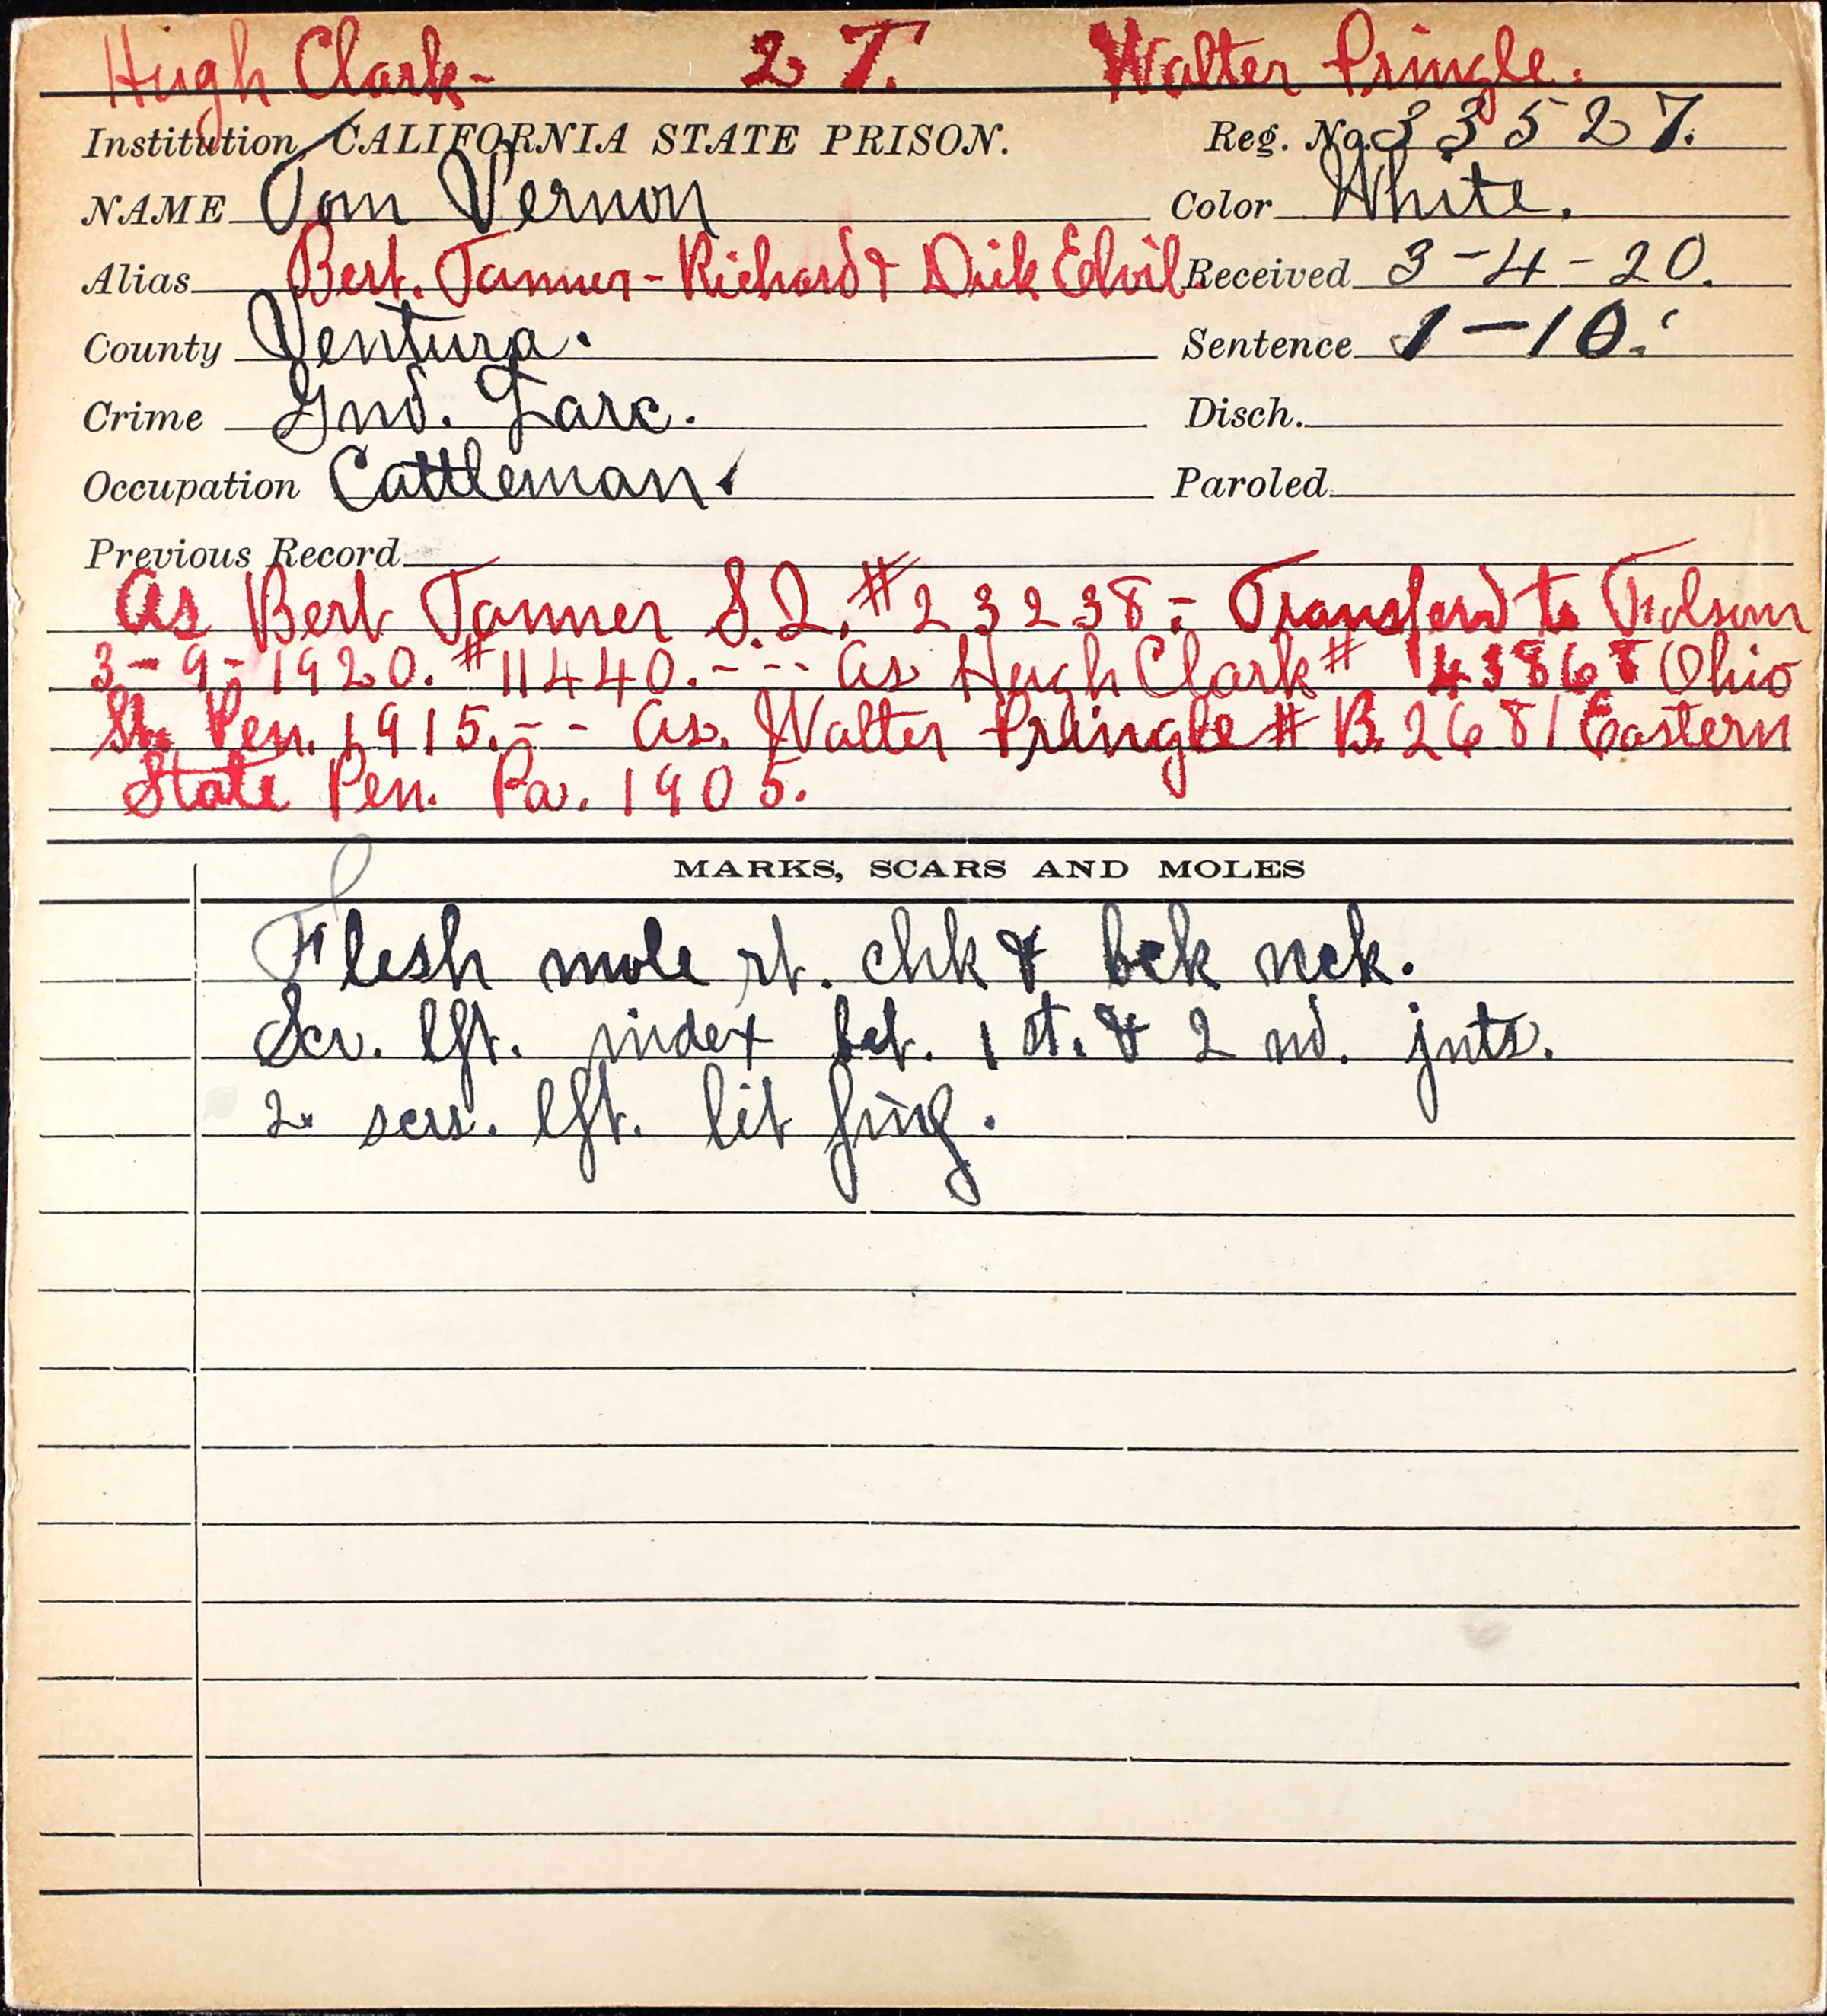 Hugh Clark- 2 T. Walter Pringle.
Institution, CALIFORNIA STATE PRISON. Reg. No. 33527.
NAME Tom Vernon Color White.
Alias Bert. Tanner - Richard & Dick Edvil. Received 3-4-20.
County Ventura. Sentence 1-10.
Crime Gnd. Larc. Disch.
Occupation Cattleman. Paroled
Previous Record
As Bert Tanner S.Q. #23238 - Transferd to Folsom
3-9-1920. #11440. --- As Hugh Clark # 43868 Ohio
St. Pen. 1915. -- As. Walter Pringle # B.2681 Eastern
State Pen. Pa. 1905.
MARKS, SCARS AND MOLES
Flesh mole rt. chk & bck nck.
Scr. lft. index bet. 1 st. & 2 nd. jnts.
2 scrs. lft. lit fing.